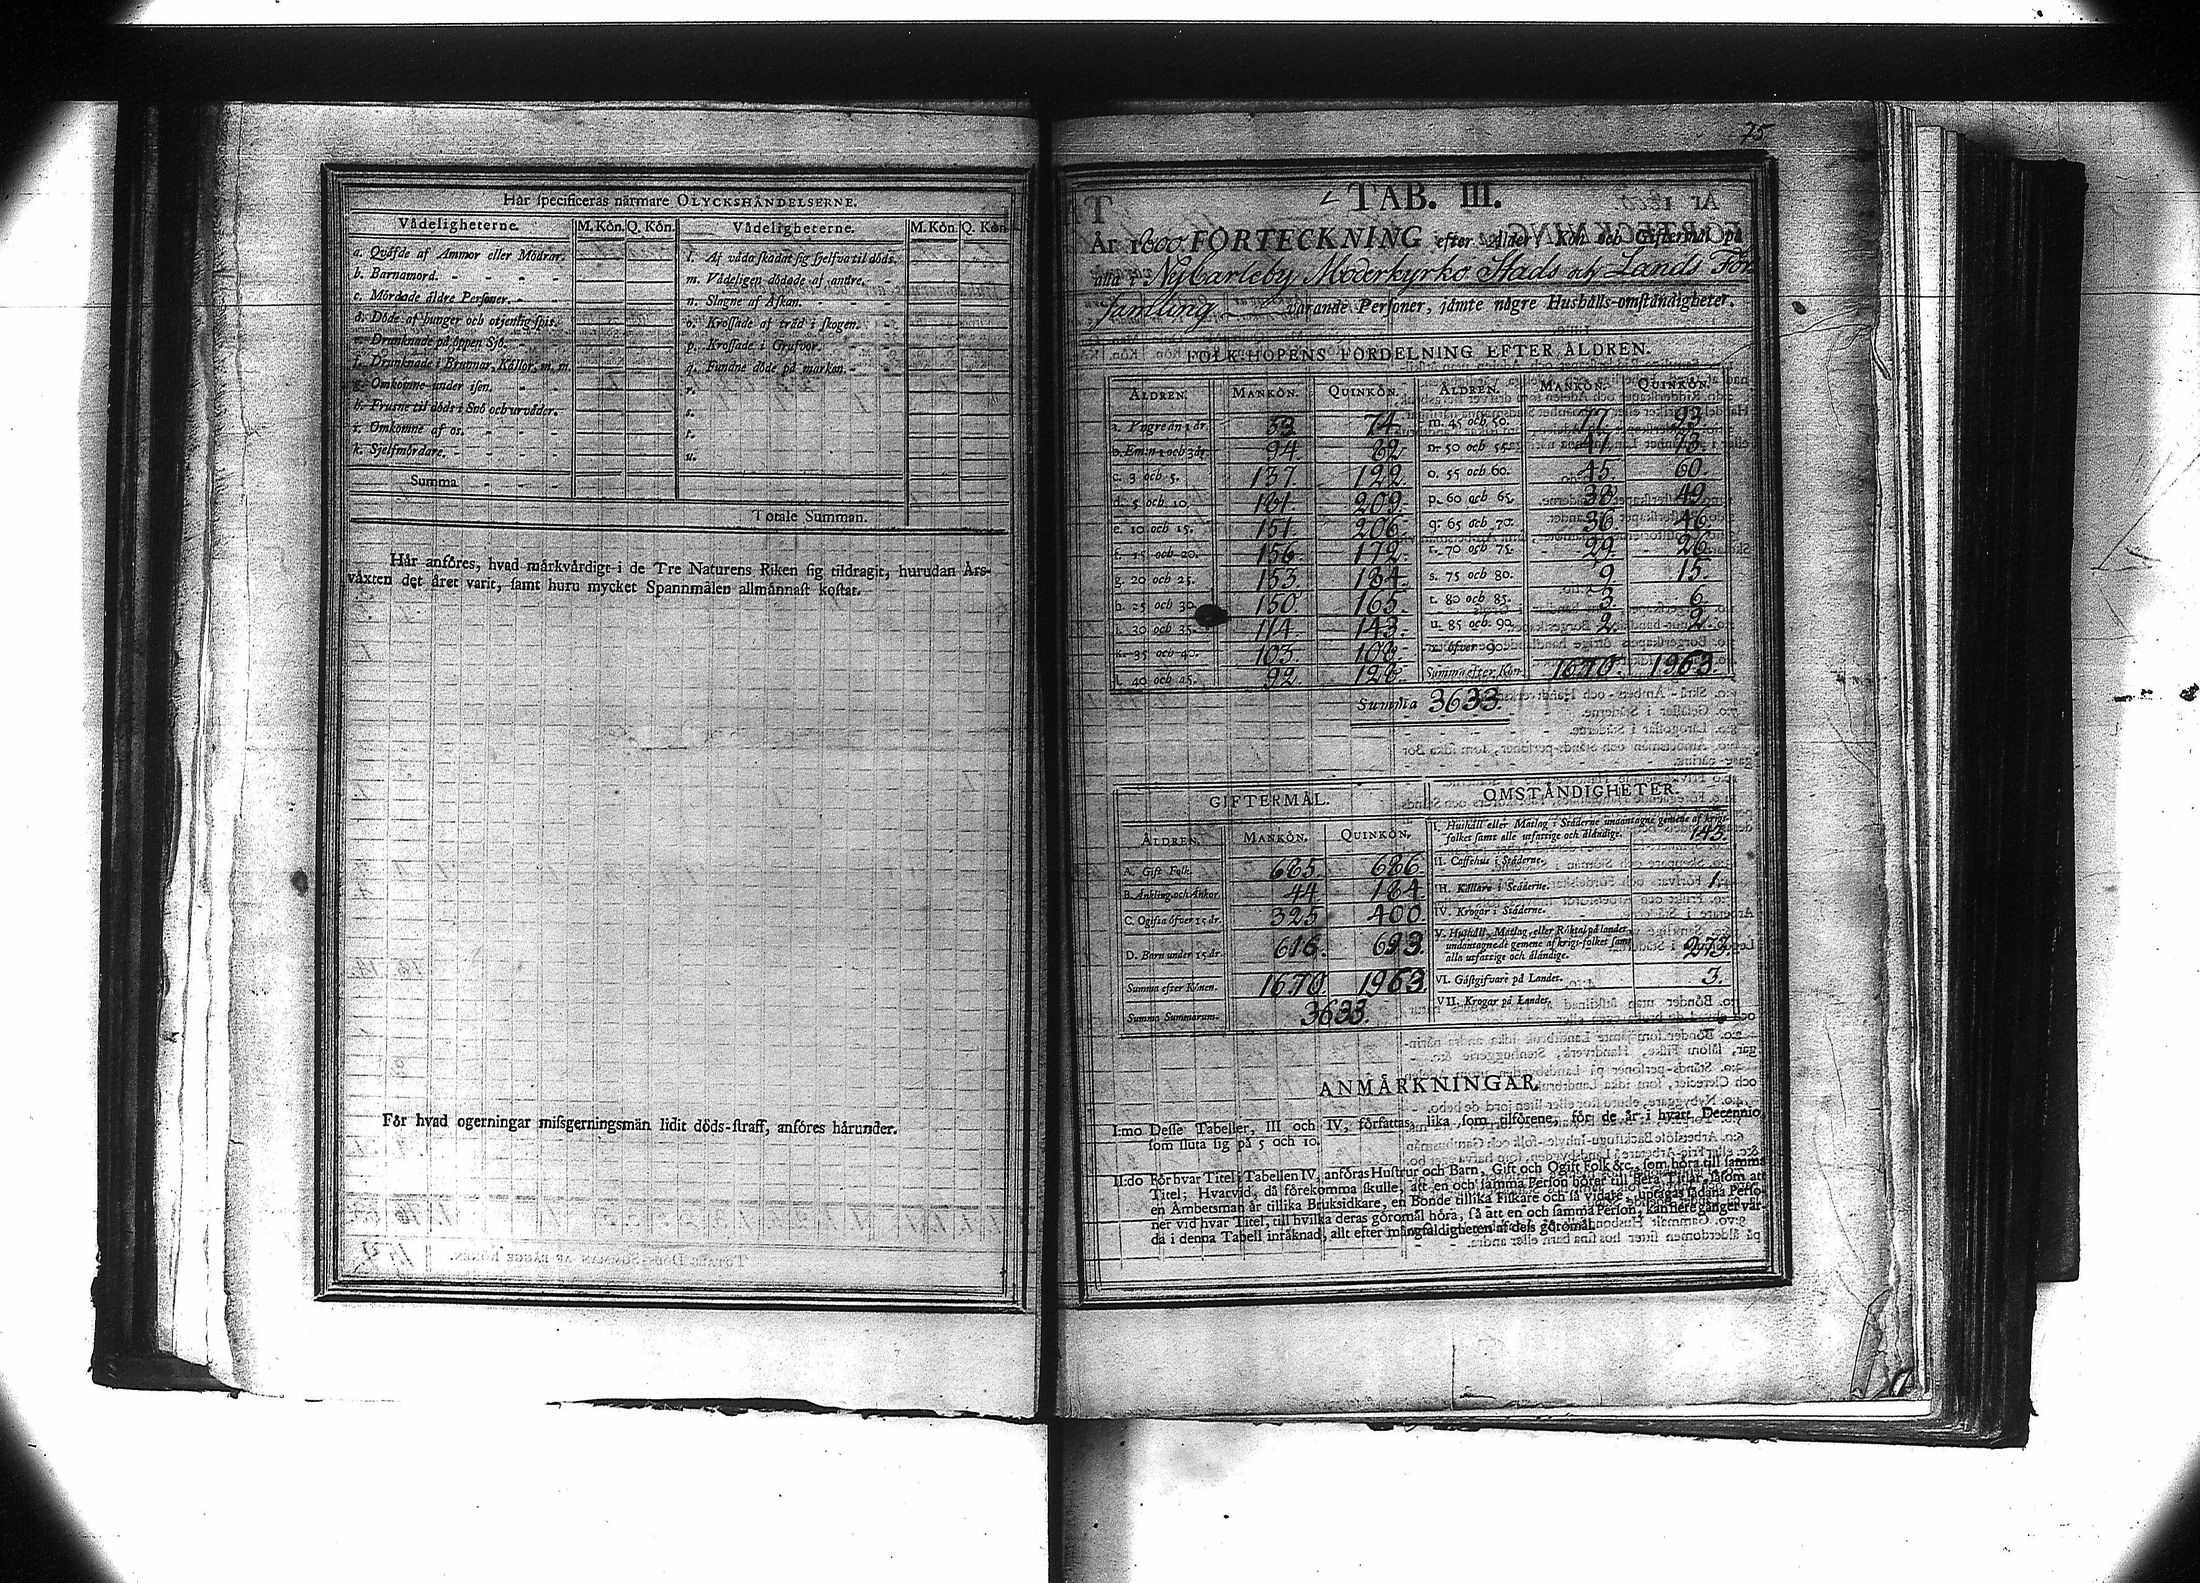 Här specificeras närmare OLYCKSHÄNDELSERNE.
Vådeligheterne. M. Kön. Q. Kön. Vådeligheterne. M. Kön. Q. Kön.
a. Quäfde af Ammor eller Mödrar. l. Af våda skadat sig sjelfva til döds.
b. Barnamord. m. Vådeligen dödade af andre.
c. Mördade äldre Personer. n. Slagne af Åskan.
d. Döde af hunger och otjenlig spis. o. Krossade af träd i skogen.
e. Drunknade på öppen Sjö. p. Krossade i Grufvor.
f. Drunknade i Brunnar, Källor, m. m. q. Fundne döde på marken.
g. Omkomne under isen. r.
h. Frusne til döds i Snö och urväder. s.
i. Omkomne af os. t.
k. Sjelfmördare. u.
Summa
Totale Summan.
Här anföres, hvad märkvärdigt i de Tre Naturens Riken sig tildragit, hurudan Års-
växten det året varit, samt huru mycket Spannmålen allmännast kostar.
För hvad ogerningar missgerningsmän lidit döds-straff, anföres härunder.
75
TAB. III.
År 1800. FÖRTECKNING efter Ålder Kön och Giftermål på
alla i Nycarleby Moderkyrko Stads och Lands För-
samling varande Personer, jämte någre Hushålls-omständigheter.
FOLK-HOPENS FÖRDELNING EFTER ÅLDREN.
ÅLDREN. MANKÖN. QUINKÖN. ÅLDREN. MANKÖN. QUINKÖN.
a. Yngre än 1 år. 74. m. 45 och 50. 77. 93.
b. Emin 1 och 3 år. 94. 82 n. 50 och 55. 47. 73.
c. 3 och 5. 137. 122. o. 55 och 60. 45. 60.
d. 5 och 10. 209. p. 60 och 65. 38. 49.
e. 10 och 15. 151. 206. q. 65 och 70. 36. 46.
f. 15 och 20. 156. 172. r. 70 och 75. 29. 26.
g. 20 och 25. 153. 184. s. 75 och 80. 9. 15.
h. 25 och 30. 150 165. t. 80 och 85. 3. 6.
i. 30 och 35. 114. 143. u. 85 och 90. 2. 2.
k. 35 och 40. 103. 108. x. öfver 90.
l. 40 och 45. 92. Summa efter Kön. 1670. 1963.
Summa 3633.
GIFTERMÅL. OMSTÄNDIGHETER.
ÅLDREN. MANKÖN. QUINKÖN.
I. Hushåll eller Matlag i Städerne undantagne gemene af krigs-
folket samt alle utfattige och åldrige. 143.
A. Gift Folk. 685. 686. II. Caffehus i Städerne.
B. Änkling. och Änkor. 44. 184. III. Källare i Städerne. 1.
C. Ogifta öfver 15 år. 325. 400. IV. Krogar i Städerne.
V. Hushåll, Matlag, eller Röktal på landet,
D. Barn under 15 år. 616. 693. undantagne de gemene af krigs-folket samt 273.
alla utfattige och åldrige.
Summa efter Könen. 1670. 1963. VI. Gästgifvare på Landet. 3.
Summa Summarum. 3633. VII. Krogar på Landet.
ANMÄRKNINGAR.
I:mo Desse Tabeller, III och IV, författas, lika som tilförene, för de år i hvart Decennio,
som sluta sig på 5 och 10.
II:do För hvar Titel i Tabellen IV, anföras Hustrur och Barn, Gift och Ogift Folk &c., som höra till samma
Titel; Hvarvid, då förekomma skulle, att en och samma Person hörer till flera Titlar, såsom att
en Ämbetsman är tillika Bruksidkare, en Bonde tillika Fiskare och så vidare, uptagas sådana Perso-
ner vid hvar Titel, till hvilka deras göromål höra, så att en och samma Person, kan flere gånger var-
da i denna Tabell inräknad, allt efter mångfaldigheten af dels göromål.